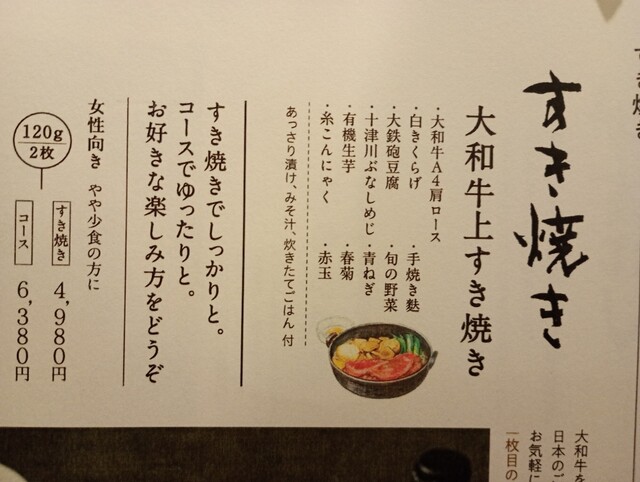 すき焼き
すき焼き
大和牛上すき焼き
・大和牛A4肩ロース
・白きくらげ ・手焼き麩
・大鉄砲豆腐 ・旬の野菜
・十津川ぶなしめじ ・青ねぎ
・有機生芋 ・春菊
・糸こんにゃく ・赤玉
あっさり漬け、みそ汁、炊きたてごはん 付
すき焼きでしっかりと。
コースでゆったりと。
お好きな楽しみ方をどうぞ
女性向き やや少食の方に
120g
2枚
すき焼き 4,980円
コース 6,380円
大和牛を
日本のご
お気軽に
一枚目の